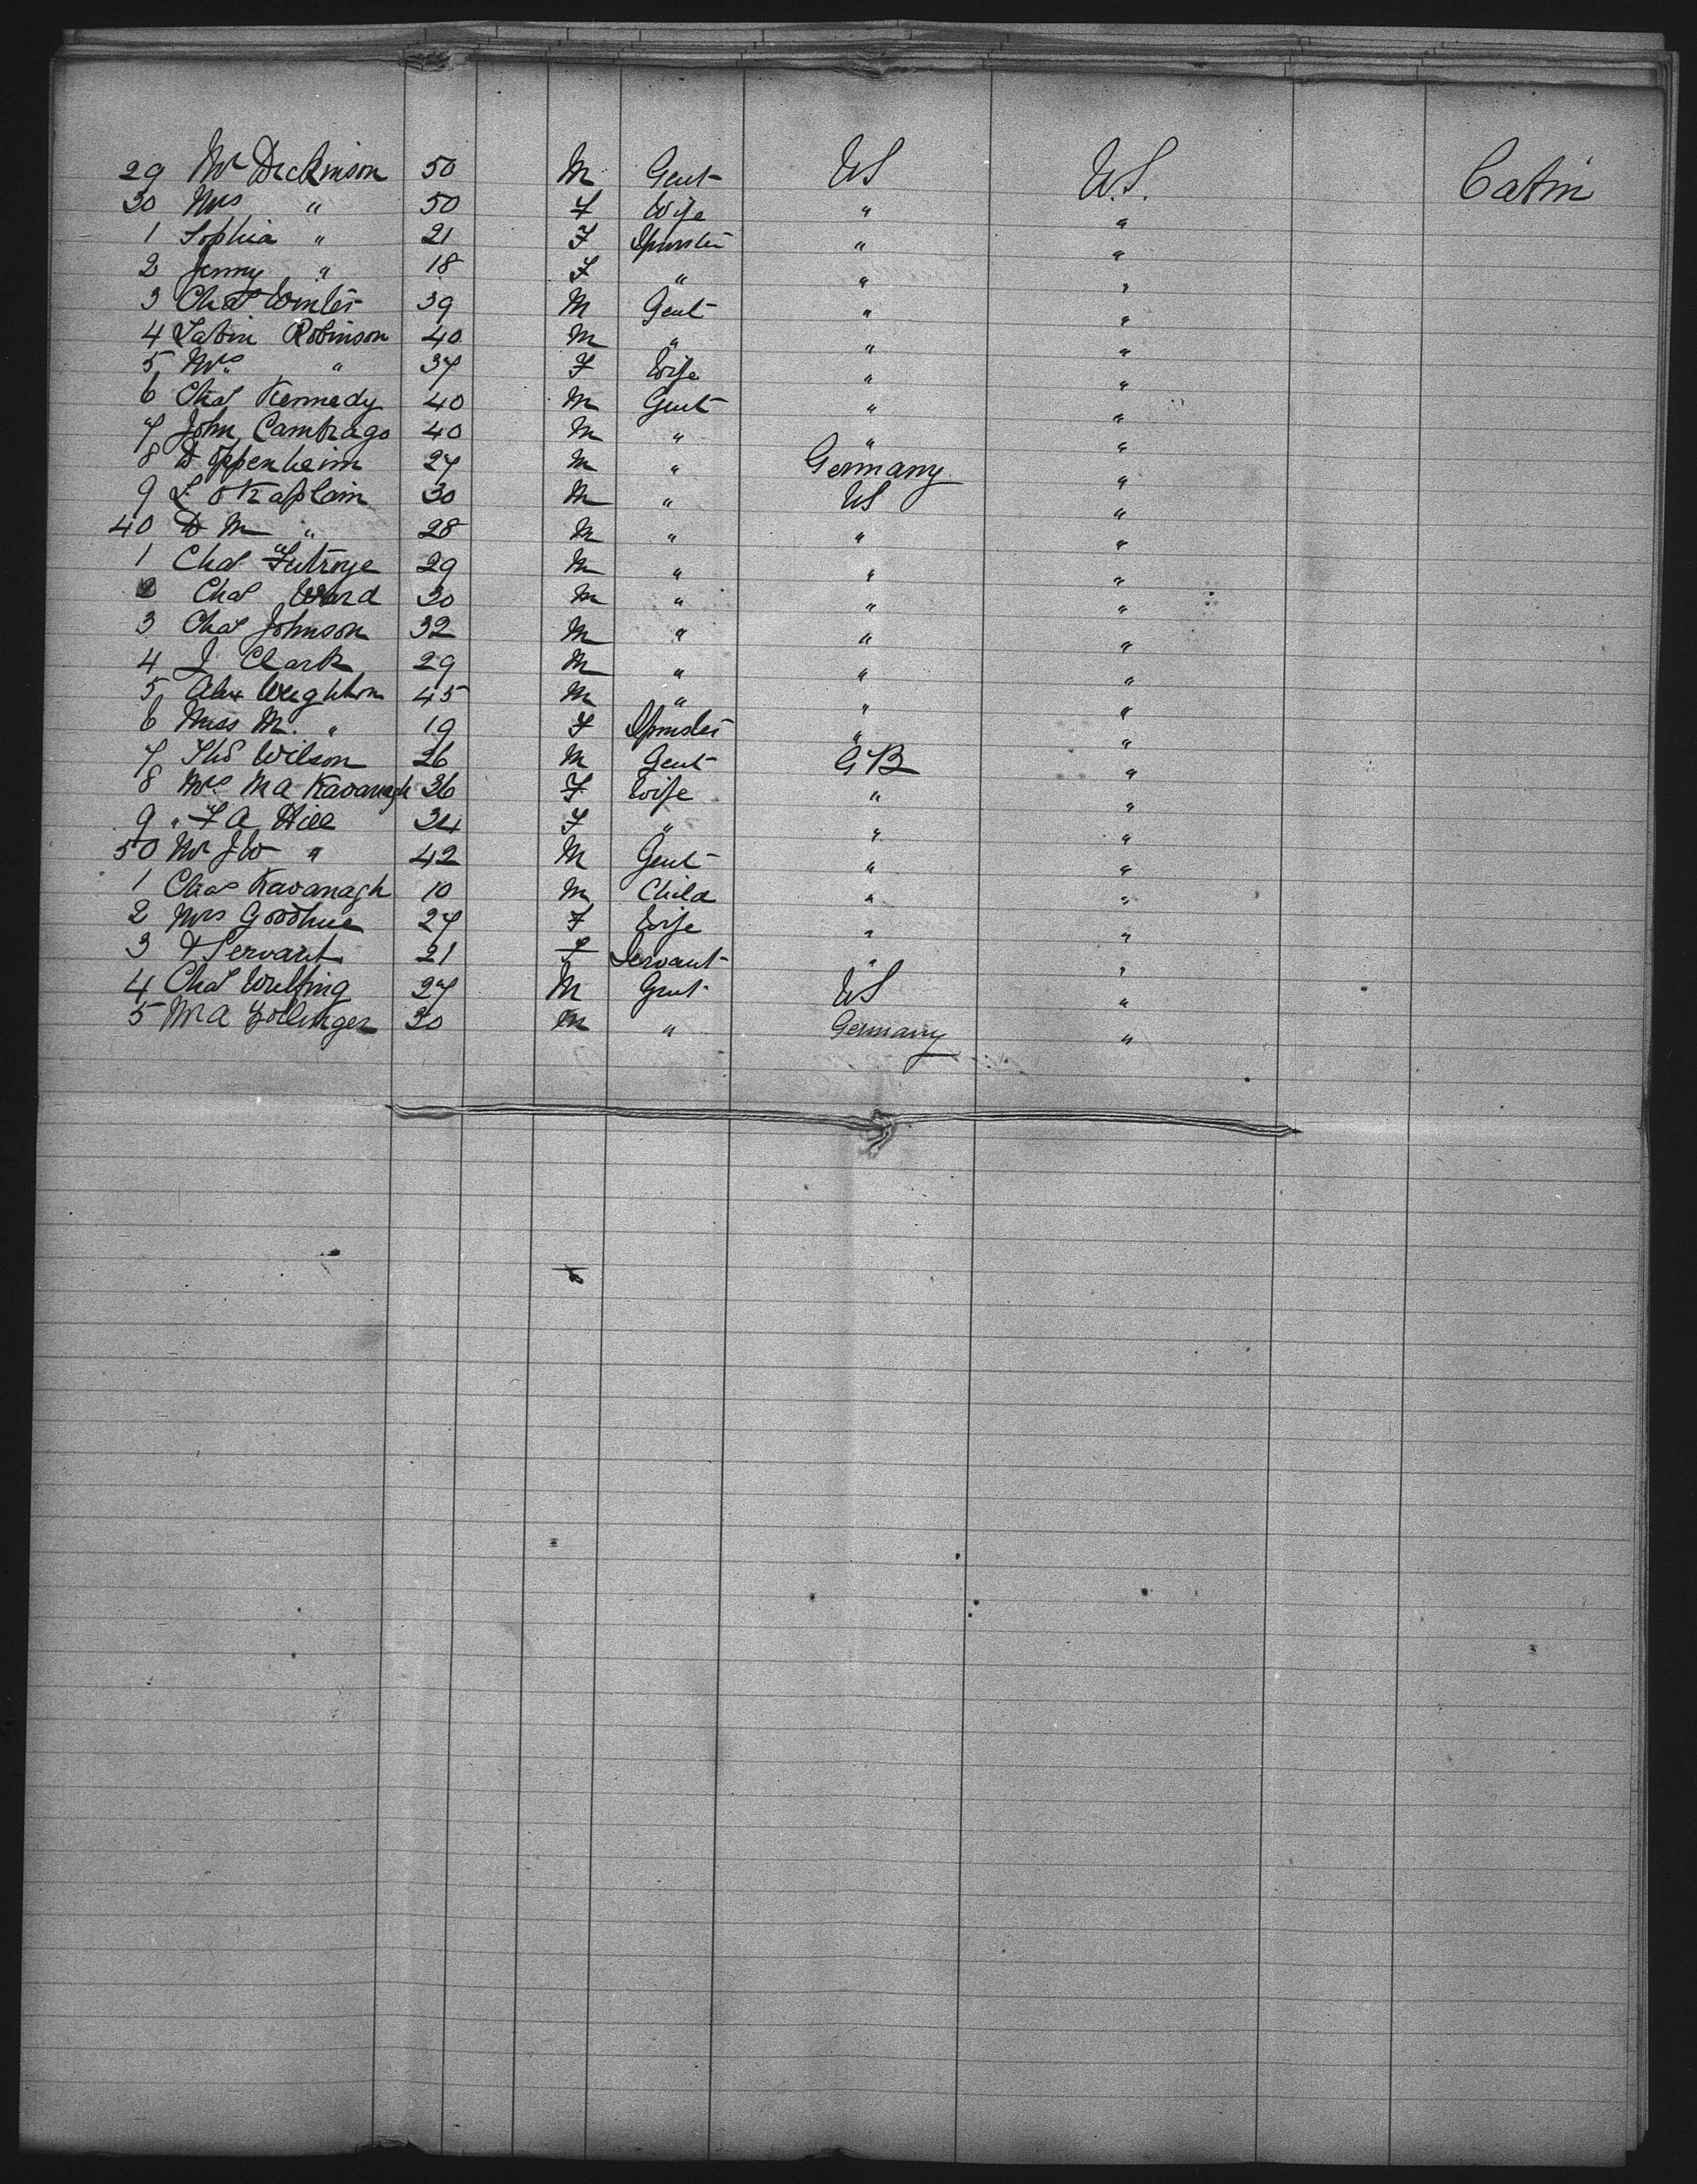 29 Mr Dickinson 50 M Gent US U.S. Cabin
30 Mrs " 50 F Wife " "
1 Sophia " 21 F Spinster " "
2 Jenny " 18 F " " "
3 Chas Winter 39 M Gent " "
4 Robinson 40 M " " "
5 Mrs " 37 F Wife " "
6 Chas Kennedy 40 M Gent " "
7 John Camprago 40 M " " "
8 D Oppenheim 27 M " Germany "
9 L Kaplain 30 M " US "
40 D M " 28 M " " "
1 Chas 29 M " " "
2 Chas Ward 30 M " " "
3 Chas Johnson 32 M " " "
4 J Clark 29 M " " "
5 Alex Weighton 45 M " " "
6 Miss M. " 19 F Spinster " "
7 Thos Wilson 26 M Gent GB "
8 Mrs M A Kavanagh 36 F Wife " "
9 " F A Hill 34 F " " "
50 Mr J W " 42 M Gent " "
1 Chas Kavanagh 10 M Child " "
2 Mrs Goodhue 27 F Wife " "
3 & Servant 21 F Servant " "
4 Chas Wulfing 27 M Gent US "
5 Mr A Zollinger 30 M " Germany "